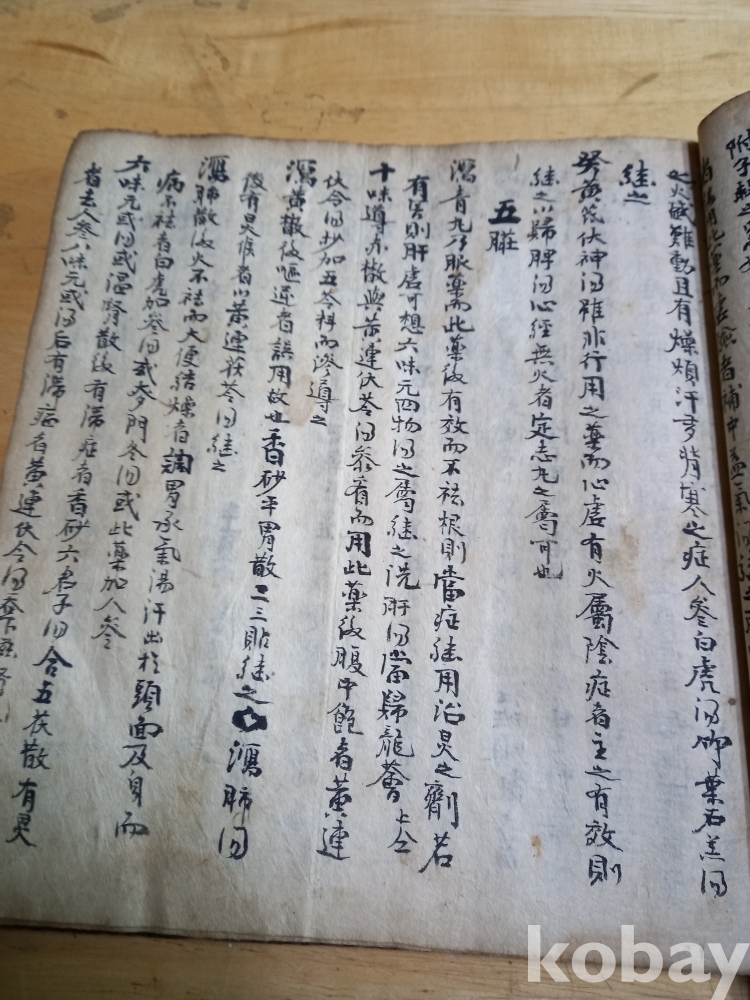 之火碱難動且有燥煩汗多背寒之症人參白虎湯竹葉石羔湯
継之
茯神湯雖非行用之藥而心虛有火屬陰症者主之有效則
継之以歸脾湯心經無火者定志丸之屬可也
五臟
瀉青丸乃眼藥而此藥後有效而不祛根則當症継用治炅之劑若
有害則肝虛可想六味元四物湯之屬継之洗肝湯當歸龍薈上仝
十味導赤散與黃連伏苓湯叅看而用此藥後腹中飽者黃連
伏令湯抄加五苓料而滲導之
瀉黃散後嘔逆者誤用故也香砂平胃散二三貼継之
後有炅候者以黃連茯苓湯継之
瀉肺湯
瀉肺散後火不祛而大便結燥者調胃承氣湯汗出於頭面及身而
病不祛者白虎加參湯或麥門冬湯或此藥加人參
六味元或湯或溫腎散後有滯症者香砂六君子湯合五茯散有炅
者去人參八味元或湯后有滯症者黃連伏令湯
附子
補中益氣湯
kobay